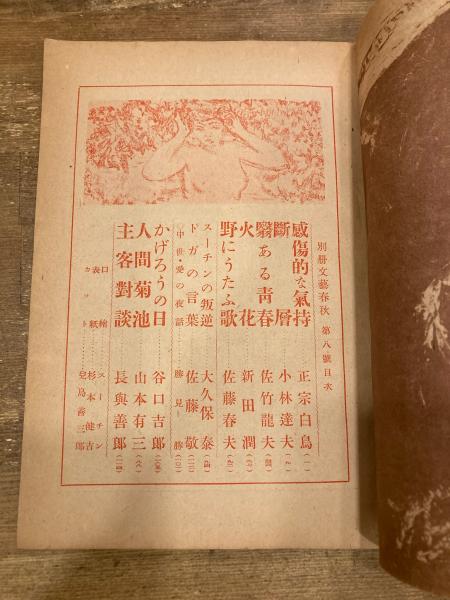 別册文藝春秋 第八號目次
感傷的な氣持 正宗白鳥
斷層 小林達夫
翳ある靑春 佐竹龍夫
火花 新田潤
野にうたふ歌 佐藤春夫
スーチンの叛逆 大久保泰
ドガの言葉 佐藤敬
中世・愛の夜話 勝見勝
かげろうの日 谷口吉郎
人間菊池 山本有三
主客對談 長與善郎
口繪 スーチン
表紙 杉本健吉
カット 兒島善三郎